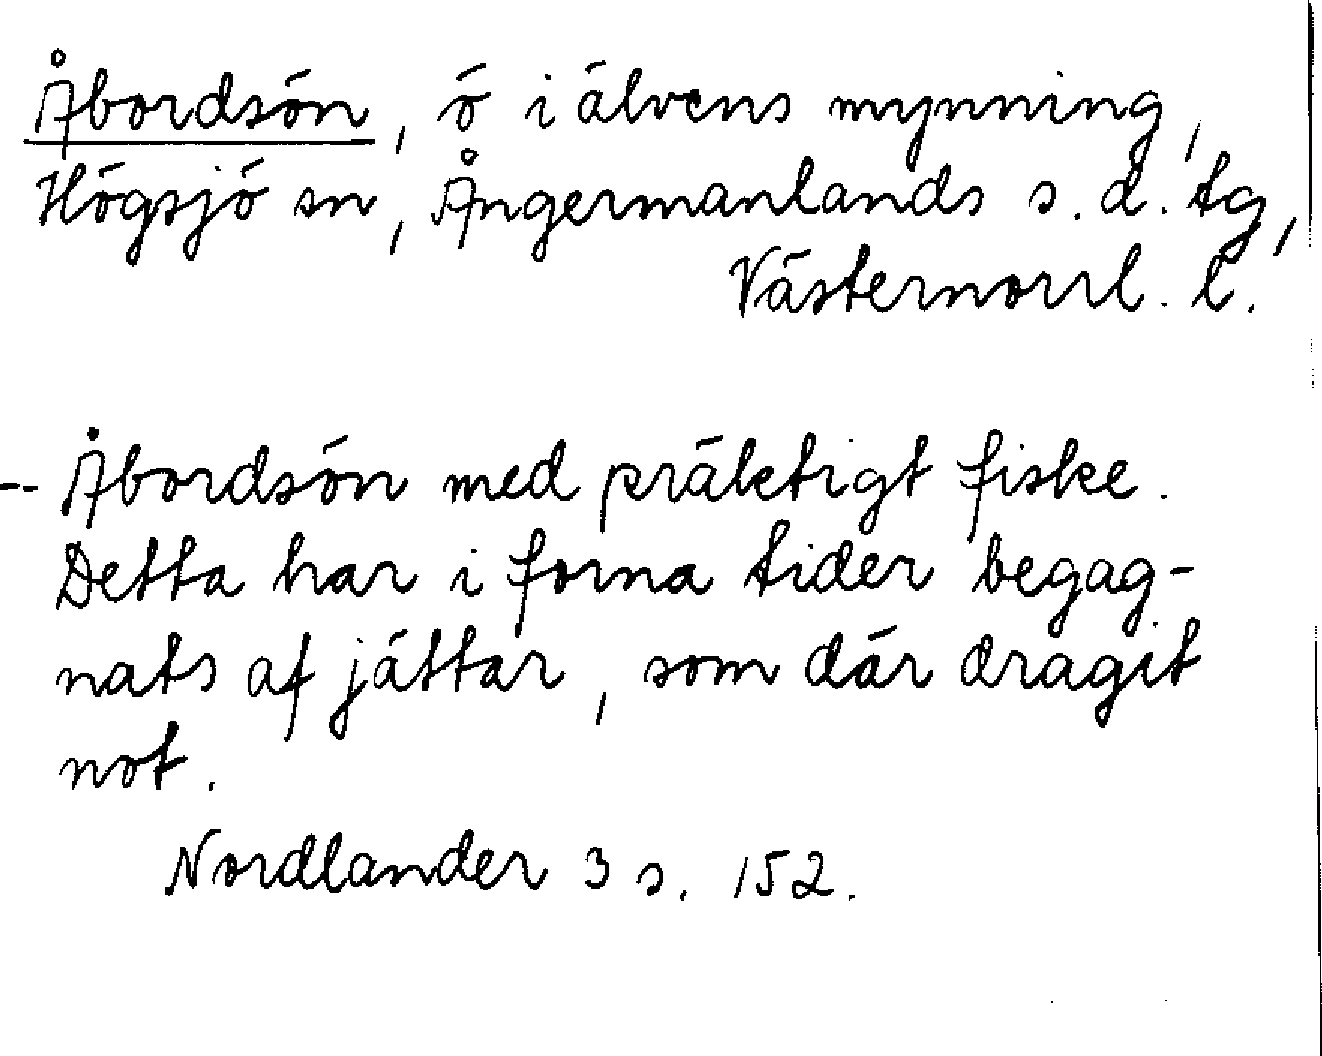 Åbordsön, ö i älvens mynning,
Högsjö sn, Ångermanlands s. d. tg,
Västernorrl. l.
-- Åbordsön med präktigt fiske.
Detta har i forna tider begag-
nats af jättar, som där dragit
not.
Nordlander 3 s. 152.